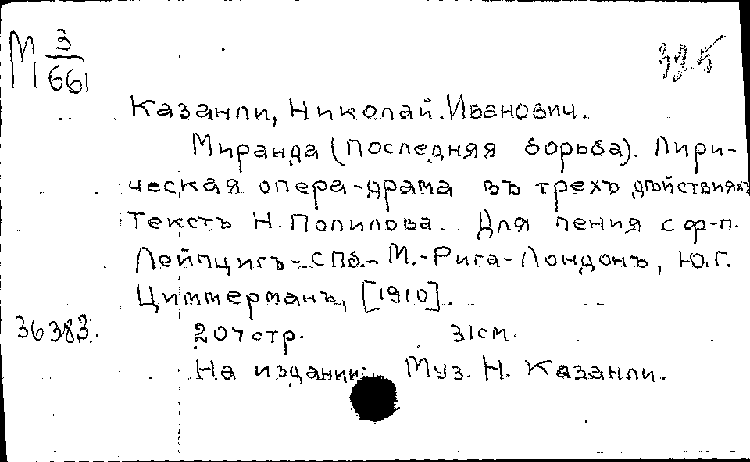 М 3/661
Казанли, Николай Иванович.
Миранда (Последняя борьба). Лири-
ческая опера-драма въ трехъ дѣйствияхъ
Текстъ Н. Попилова. Для пения с ф-п.
Лейпцигъ-СПб.-М.-Рига-Лондонъ, Ю.Г.
Циммерманъ, [1910].
36383. 207 стр. 31 см.
На издании: Муз. Н. Казанли.